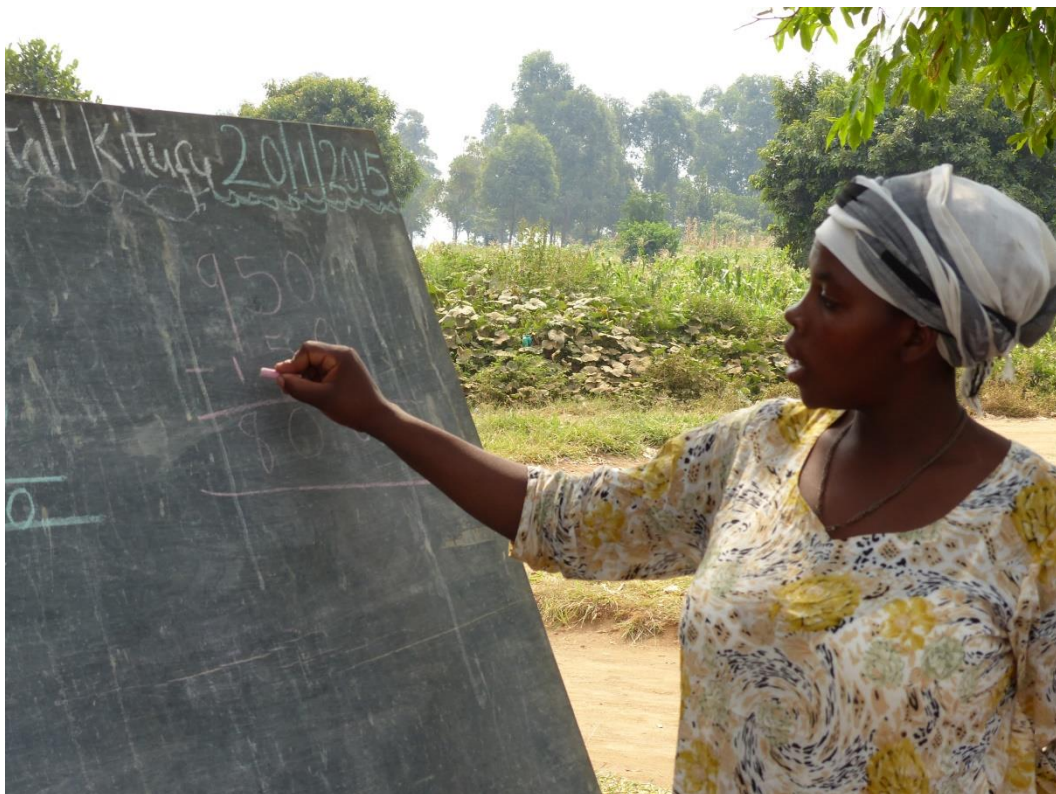 tali kitufu 20/1/2015
950
- 150
800
0